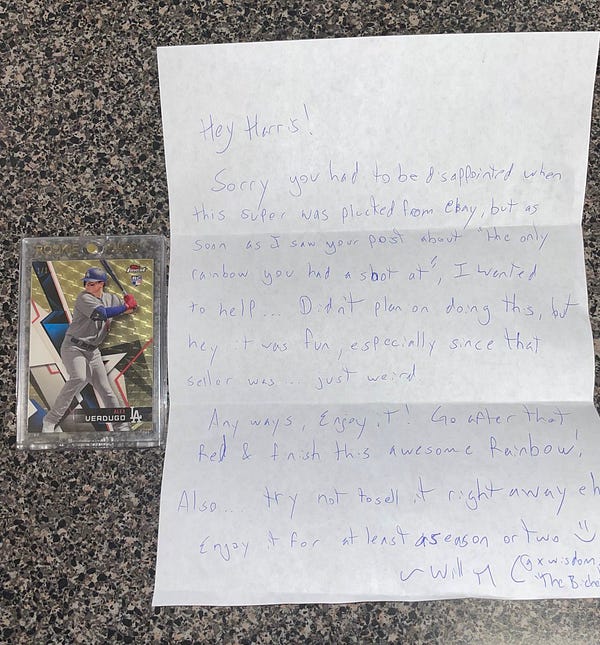 Hey Harris!
Sorry you had to be disappointed when
this super was plucked from ebay, but as
soon as I saw your post about "the only
rainbow you had a shot at", I wanted
to help... Didn't plan on doing this, but
hey it was fun, especially since that
seller was... just weird
Any ways, Enjoy it! Go after that
Red & finish this awesome Rainbow!
Also... try not to sell it right away eh
Enjoy it for at least a season or two
~ Will M (@xwisdom
"The Bich
Finest
RC
ALEX
VERDUGO
LA